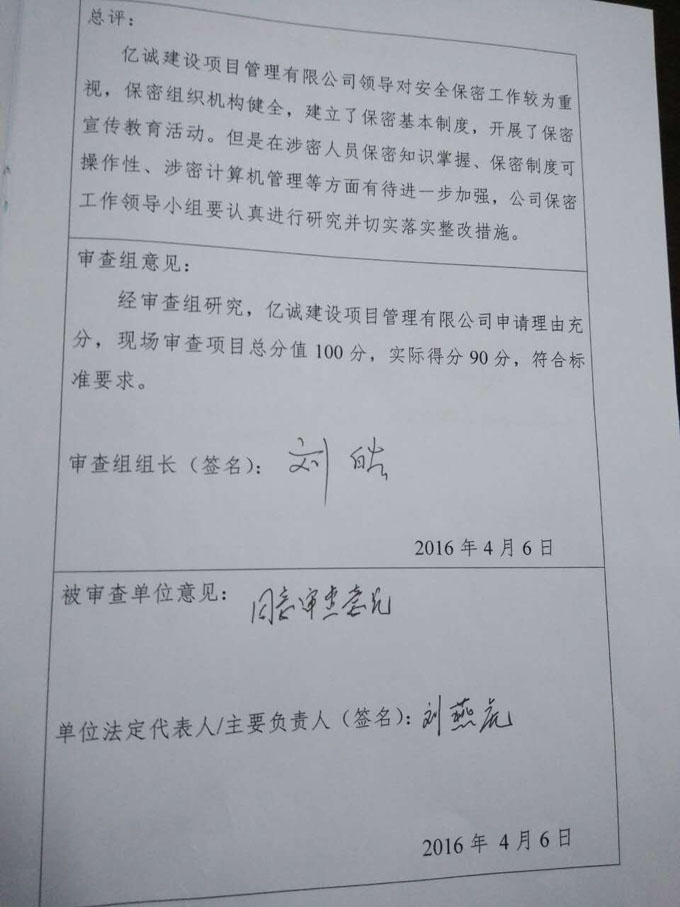 总评：
亿诚建设项目管理有限公司领导对安全保密工作较为重
视，保密组织机构健全，建立了保密基本制度，开展了保密
宣传教育活动。但是在涉密人员保密知识掌握、保密制度可
操作性、涉密计算机管理等方面有待进一步加强，公司保密
工作领导小组要认真进行研究并切实落实整改措施。
审查组意见：
经审查组研究，亿诚建设项目管理有限公司申请理由充
分，现场审查项目总分值 100 分，实际得分 90 分，符合标
准要求。
审查组组长（签名）： 刘皓
2016 年 4 月 6 日
被审查单位意见： 同意审查意见
单位法定代表人/主要负责人（签名）：刘燕虎
2016 年 4 月 6 日